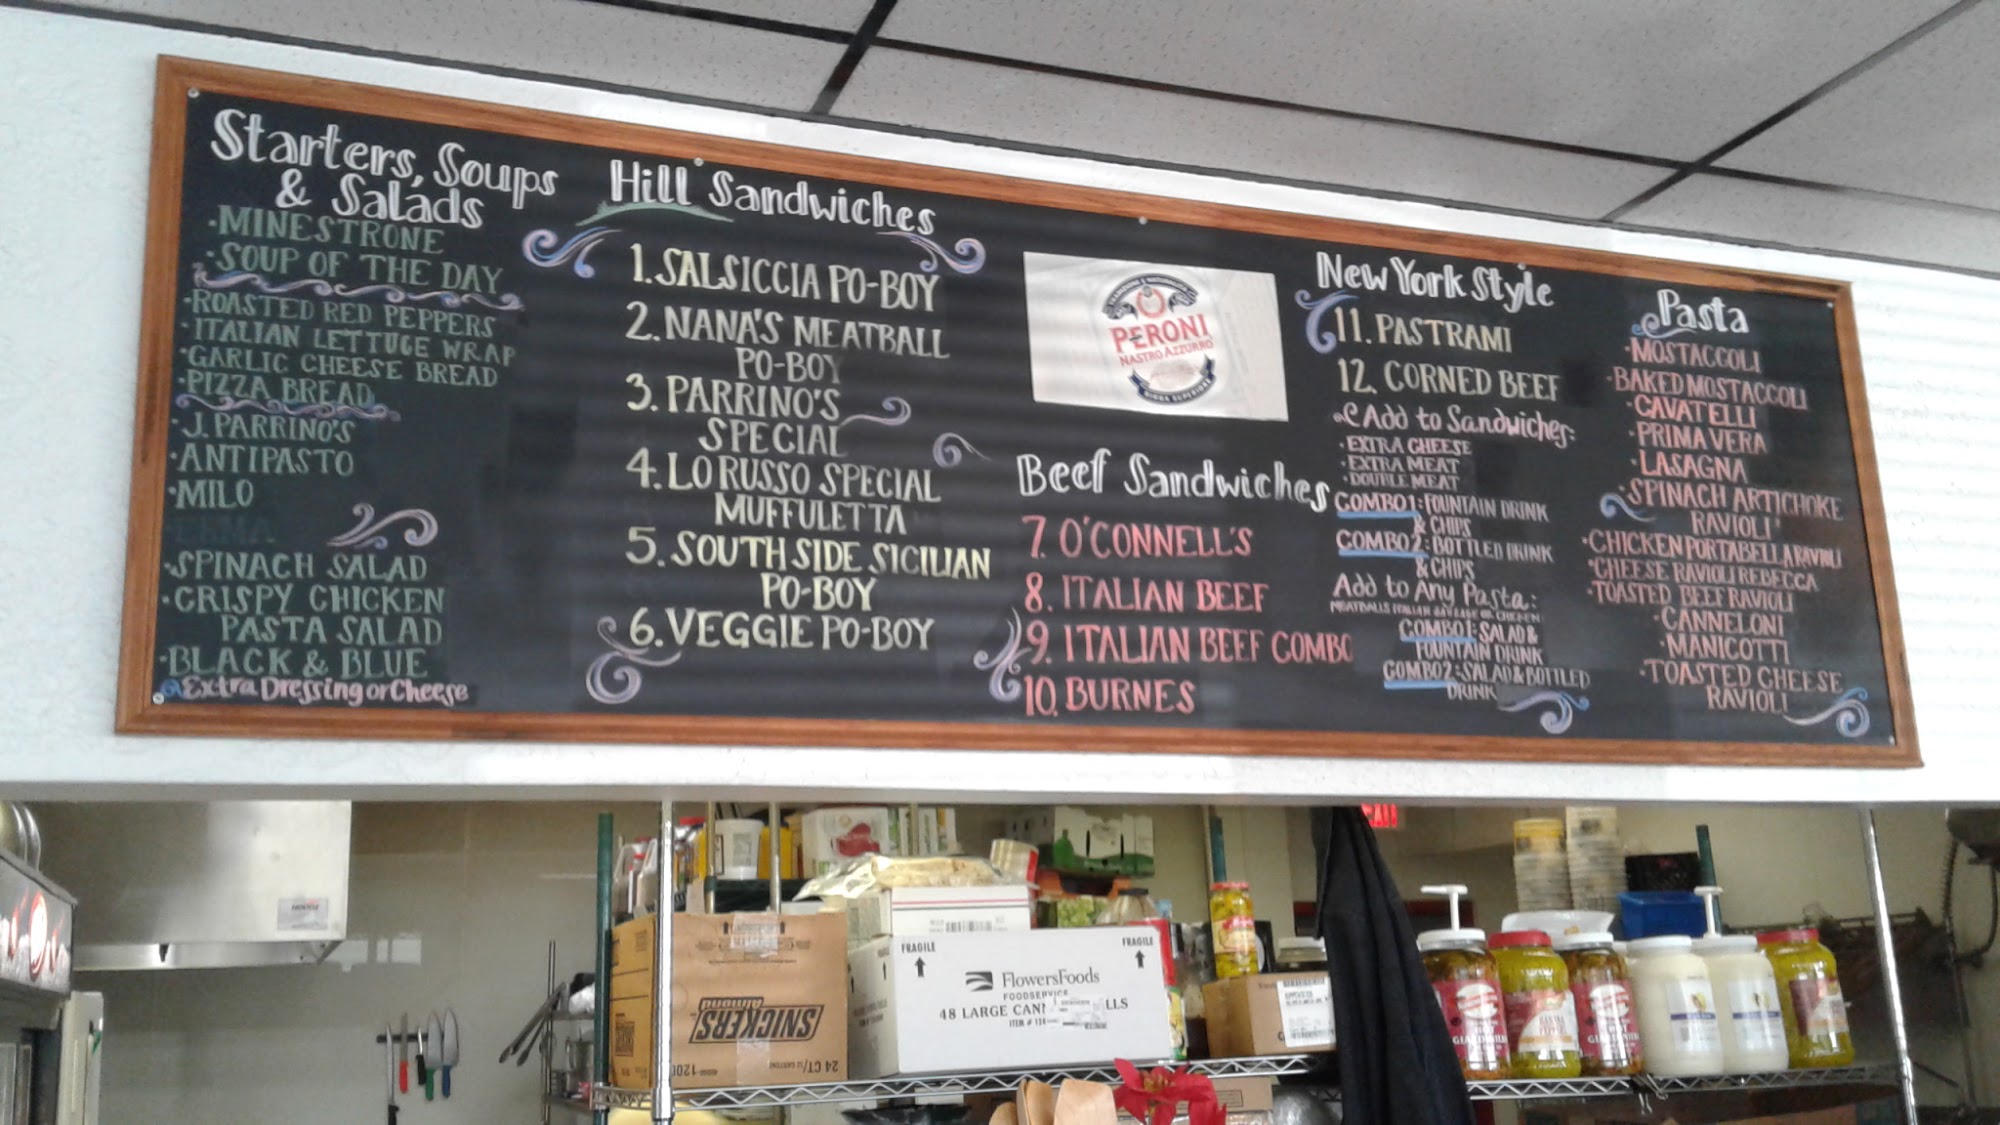 Starters, Soups
& Salads
·MINESTRONE
·SOUP OF THE DAY
·ROASTED RED PEPPERS
·ITALIAN LETTUCE WRAP
·GARLIC CHEESE BREAD
·PIZZA BREAD
·J. PARRINO'S
·ANTIPASTO
·MILO
·SPINACH SALAD
·CRISPY CHICKEN
PASTA SALAD
·BLACK & BLUE
Extra Dressing or Cheese
Hill Sandwiches
1. SALSICCIA PO-BOY
2. NANA'S MEATBALL
PO-BOY
3. PARRINO'S
SPECIAL
4. LO RUSSO SPECIAL
MUFFULETTA
5. SOUTH SIDE SICILIAN
PO-BOY
6. VEGGIE PO-BOY
PERONI
NASTRO AZZURRO
BIRRA SUPERIORE
Beef Sandwiches
7. O'CONNELL'S
8. ITALIAN BEEF
9. ITALIAN BEEF COMBO
10. BURNES
New York Style
11. PASTRAMI
12. CORNED BEEF
Add to Sandwiches:
·EXTRA CHEESE
·EXTRA MEAT
·DOUBLE MEAT
COMBO 1: FOUNTAIN DRINK
& CHIPS
COMBO 2: BOTTLED DRINK
& CHIPS
Add to Any Pasta:
MEATBALLS ITALIAN SAUSAGE OR CHICKEN
COMBO 1: SALAD &
FOUNTAIN DRINK
COMBO 2: SALAD & BOTTLED
DRINK
Pasta
·MOSTACCOLI
·BAKED MOSTACCOLI
·CAVATELLI
·PRIMAVERA
·LASAGNA
·SPINACH ARTICHOKE
RAVIOLI
·CHICKEN PORTABELLA RAVIOLI
·CHEESE RAVIOLI REBECCA
·TOASTED BEEF RAVIOLI
·CANNELONI
·MANICOTTI
·TOASTED CHEESE
RAVIOLI
EXIT
SNICKERS
Almond
24 CT/12
FRAGILE
FRAGILE
FlowersFoods
FOODSERVICE
48 LARGE
ITEM #